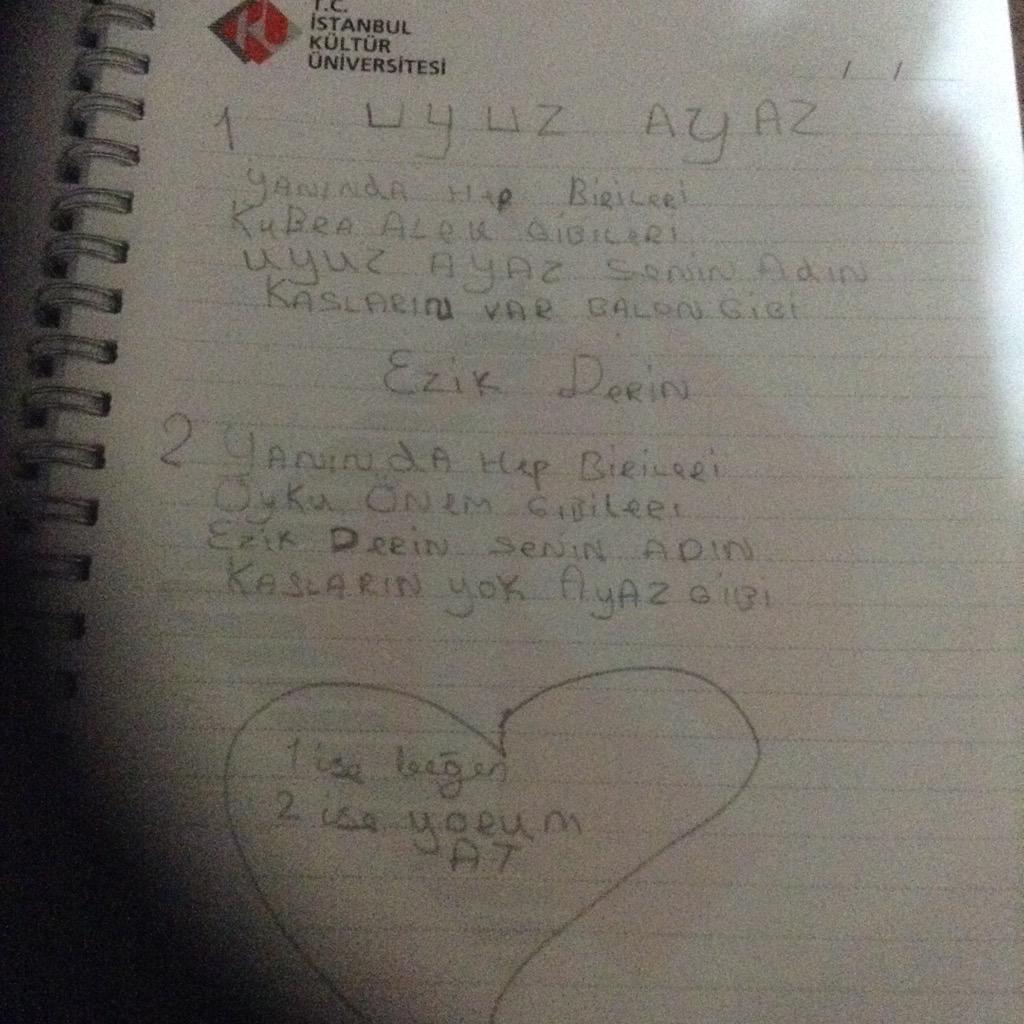 T.C.
İSTANBUL
KÜLTÜR
ÜNİVERSİTESİ
/ /
1 UYUZ AYAZ
YANINDA Hep BiRiLeRi
KuBRA ALEV GİBİLERİ
UYUZ AYAZ Senin Adın
KASLARIN VAR BALON GİBİ
Ezik Derin
2 YANINdA Hep BiRiLeRi
Öykü Önem GİBİLERİ
Ezik DERİN SENİN ADIN
KASLARIN YOK AYAZ GİBİ
1 ise beğen
2 ise yorum
AT